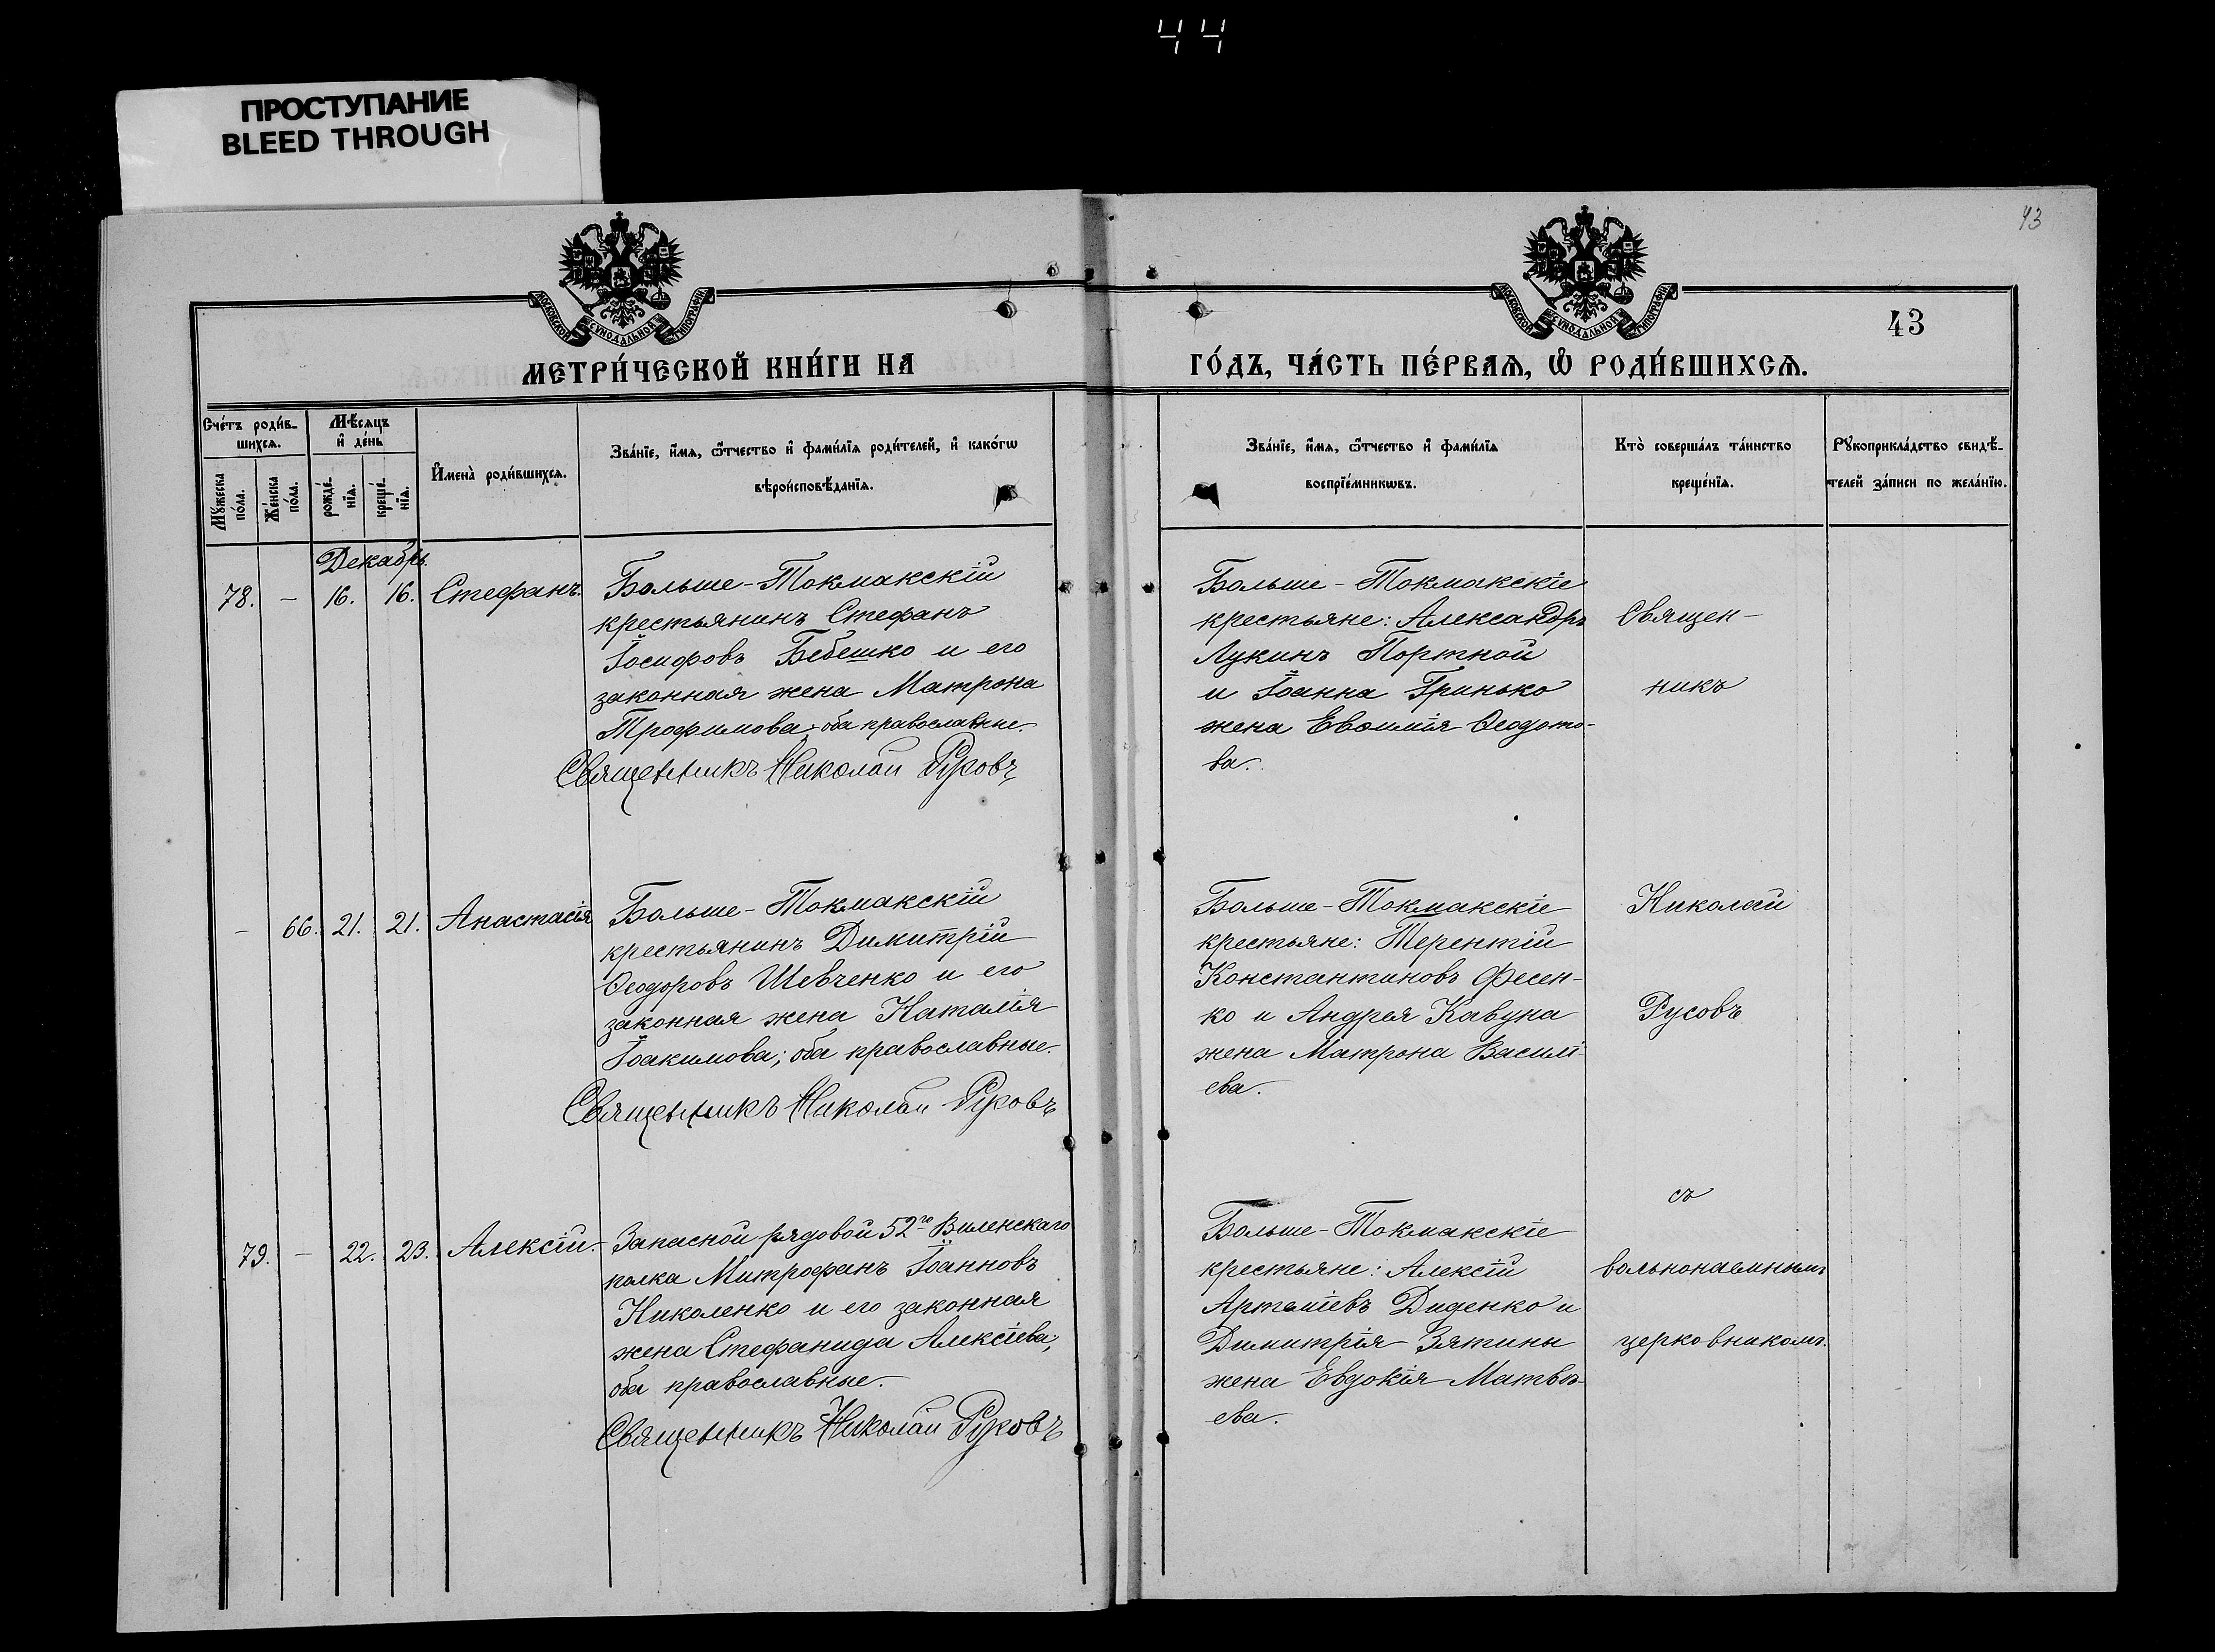 44
ПРОСТУПАНИЕ
BLEED THROUGH
43
МОСКОВСКОЙ СѴНОДАЛЬНОЙ ТИПОГРАФІИ
МОСКОВСКОЙ СѴНОДАЛЬНОЙ ТИПОГРАФІИ
43
МЕТРИ́ЧЕСКОЙ КНИ́ГИ НА
ГО́ДЪ, ЧА́СТЬ ПЕ́РВАѦ, Ѽ РОДИ́ВШИХСѦ.
Сче́тъ роди́в-
шихсѧ.
Мѣ́сѧцъ
и҆ де́нь
Мꙋ́жеска
по́ла.
Же́нска
по́ла.
рожде́-
нїѧ.
креще́-
нїѧ.
И҆мена̀ роди́вшихсѧ.
Зва́нїе, и҆́мѧ, ѻ҆́тчество и҆ фами́лїѧ роди́телей, и҆ како́гѡ
вѣроисповѣ́данїѧ.
Зва́нїе, и҆́мѧ, ѻ҆́тчество и҆ фами́лїѧ
воспрїе́мникѡвъ.
Кто̀ соверша́лъ та́инство
креще́нїѧ.
Рꙋкоприкла́дство свидѣ́-
телей за́писи по жела́нїю.
Декабрь.
78. - 16. 16. Стефанъ.
Больше-Токмакскій
крестьянинъ Стефанъ
Іосифовъ Бебешко и его
законная жена Матрона
Трофимова; оба православные.
Священникъ Николай Русовъ
Больше-Токмакскіе
крестьяне: Александръ
Лукинъ Портной
и Іоанна Гринько
жена Евѳимія Ѳеодото-
ва.
Священ-
никъ
- 66. 21. 21. Анастасія
Больше-Токмакскій
крестьянинъ Димитрій
Ѳеодоровъ Шевченко и его
законная жена Наталія
Іоакимова; оба православные.
Священникъ Николай Русовъ
Больше-Токмакскіе
крестьяне: Терентій
Константиновъ Фесен-
ко и Андрея Кавуна
жена Матрона Василі-
ева.
Николай
Русовъ
79. - 22. 23. Алексій.
Запасной рядовой 52го Виленскаго
полка Митрофанъ Іоанновъ
Николенко и его законная
жена Стефанида Алексіева;
оба православные.
Священникъ Николай Русовъ
Больше-Токмакскіе
крестьяне: Алексій
Артеміевъ Диденко и
Димитрія Зятины
жена Евдокія Матвѣ-
ева.
съ
вольнонаемнымъ
церковникомъ.